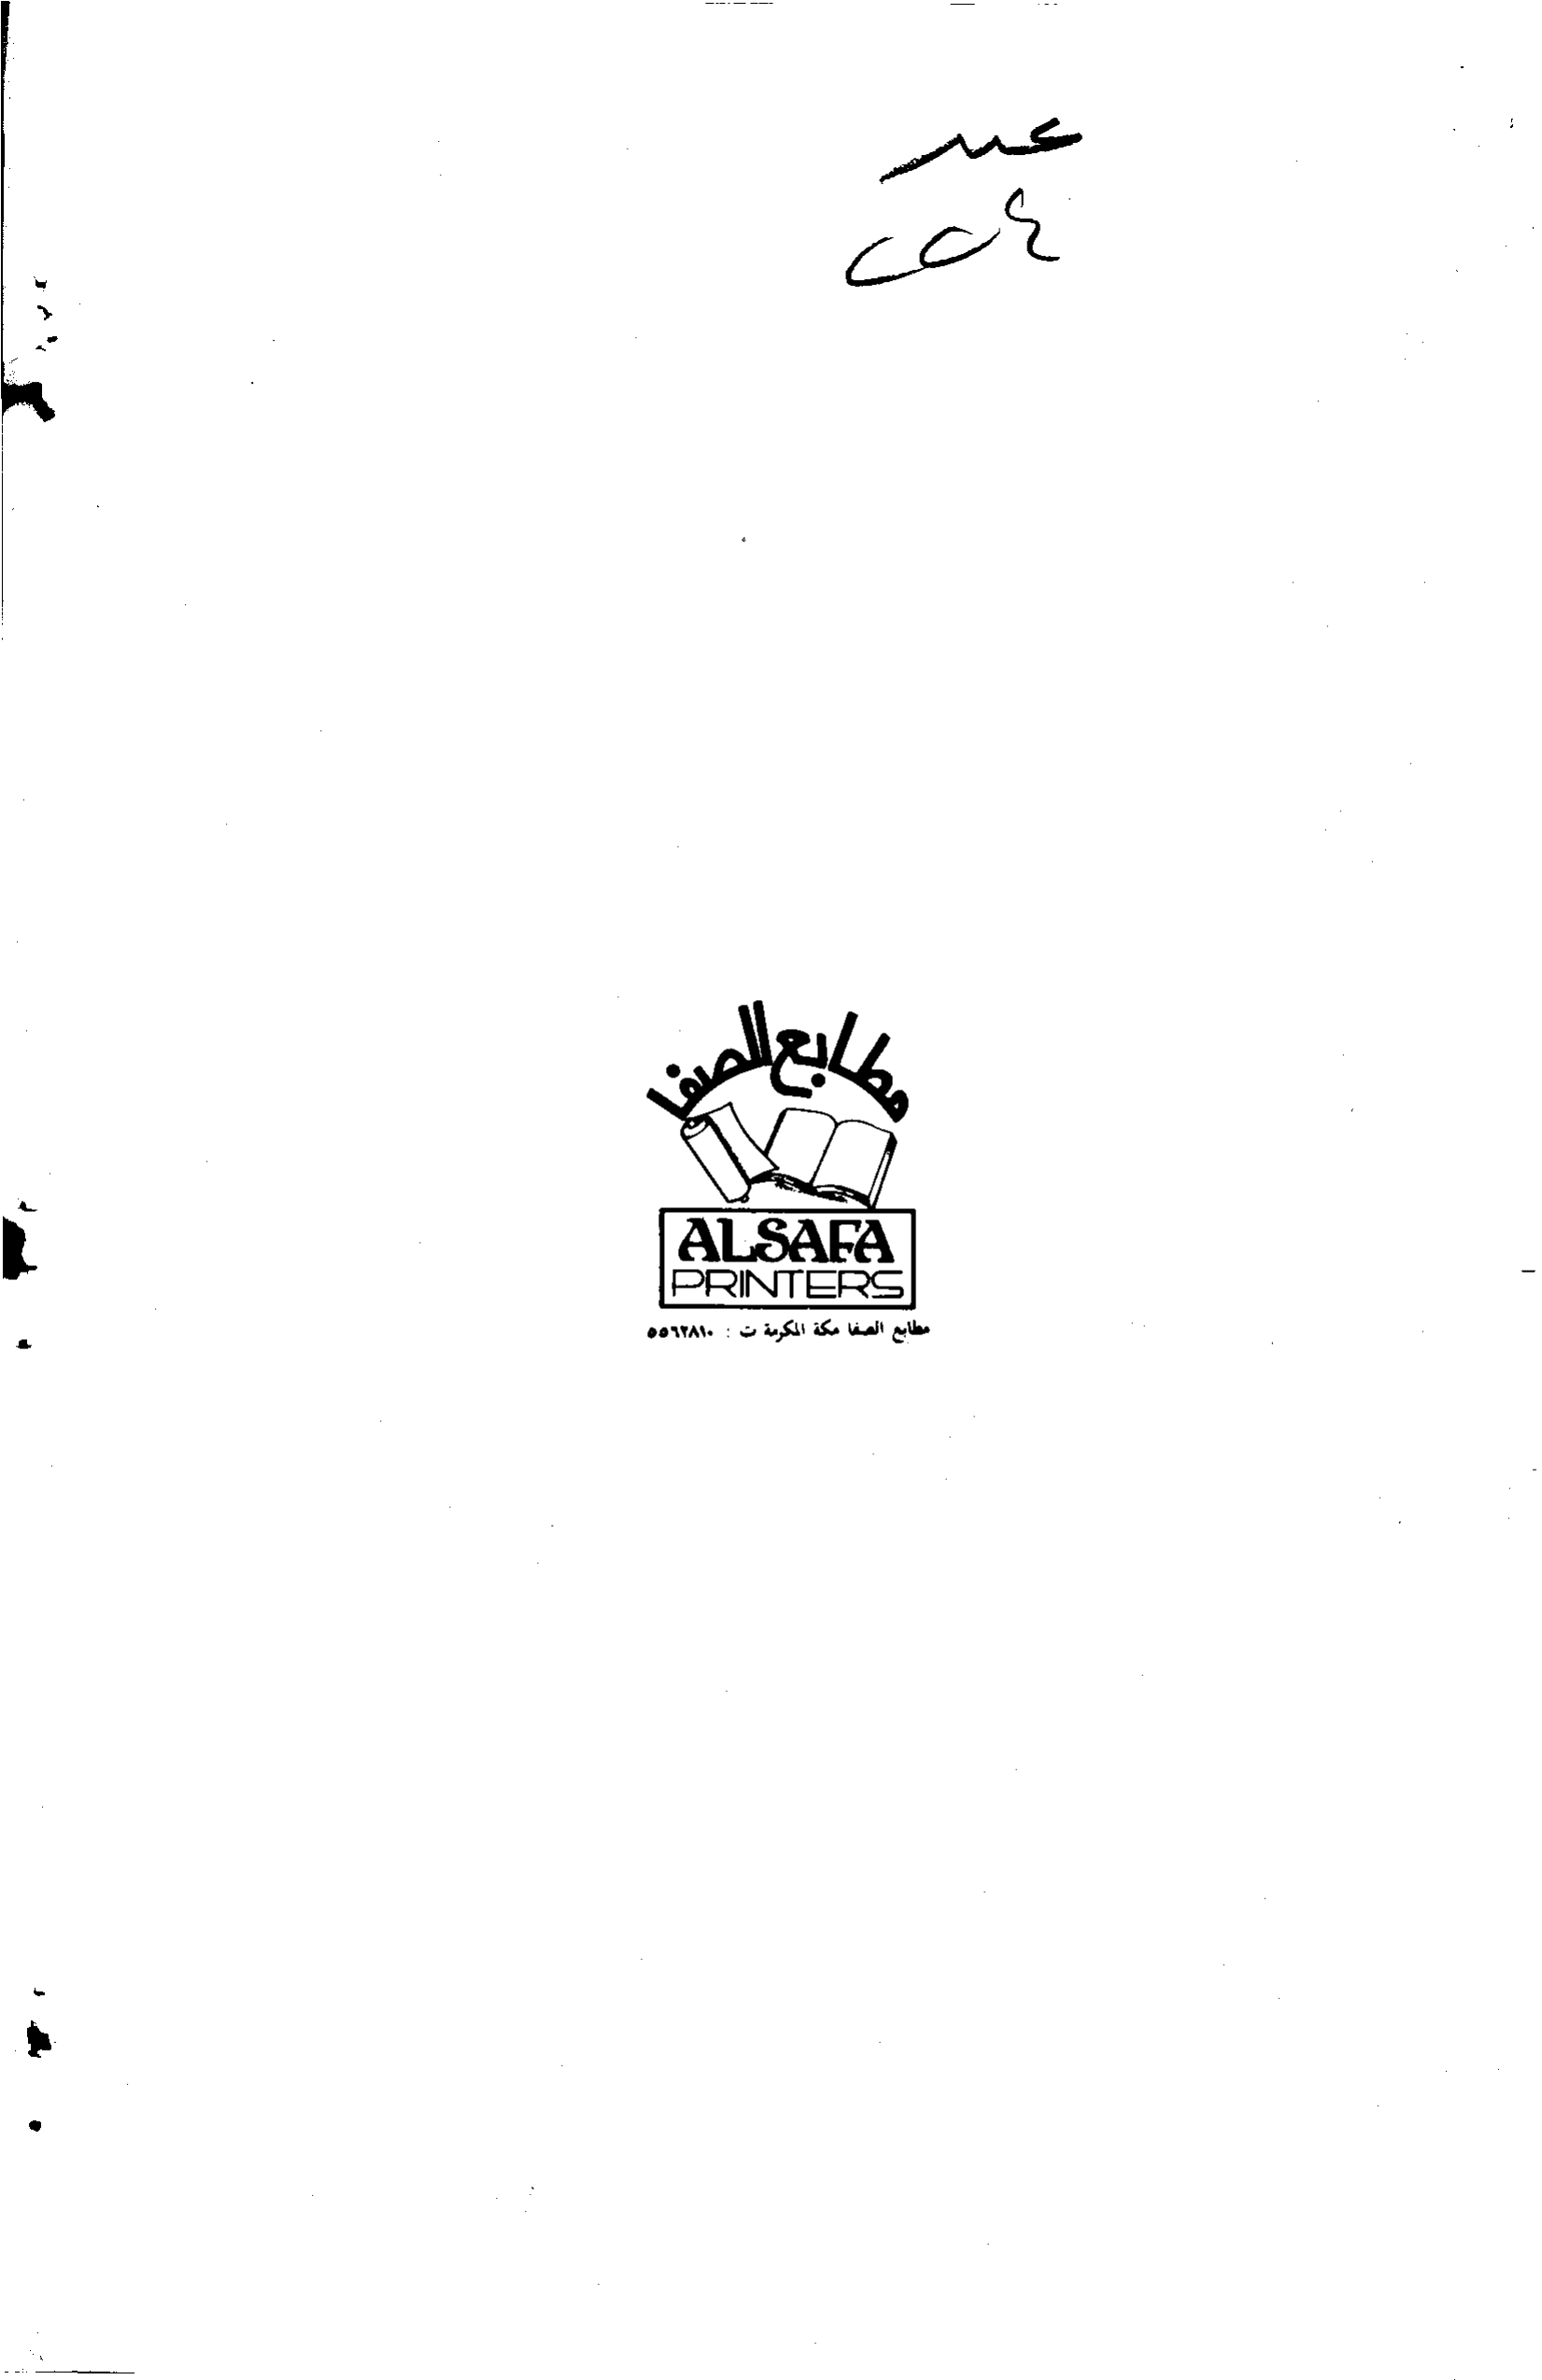 مطابع الصفا
ALSAFA
PRINTERS
مطابع الصفا مكة المكرمة ت : ٥٥٦٢٨١٠